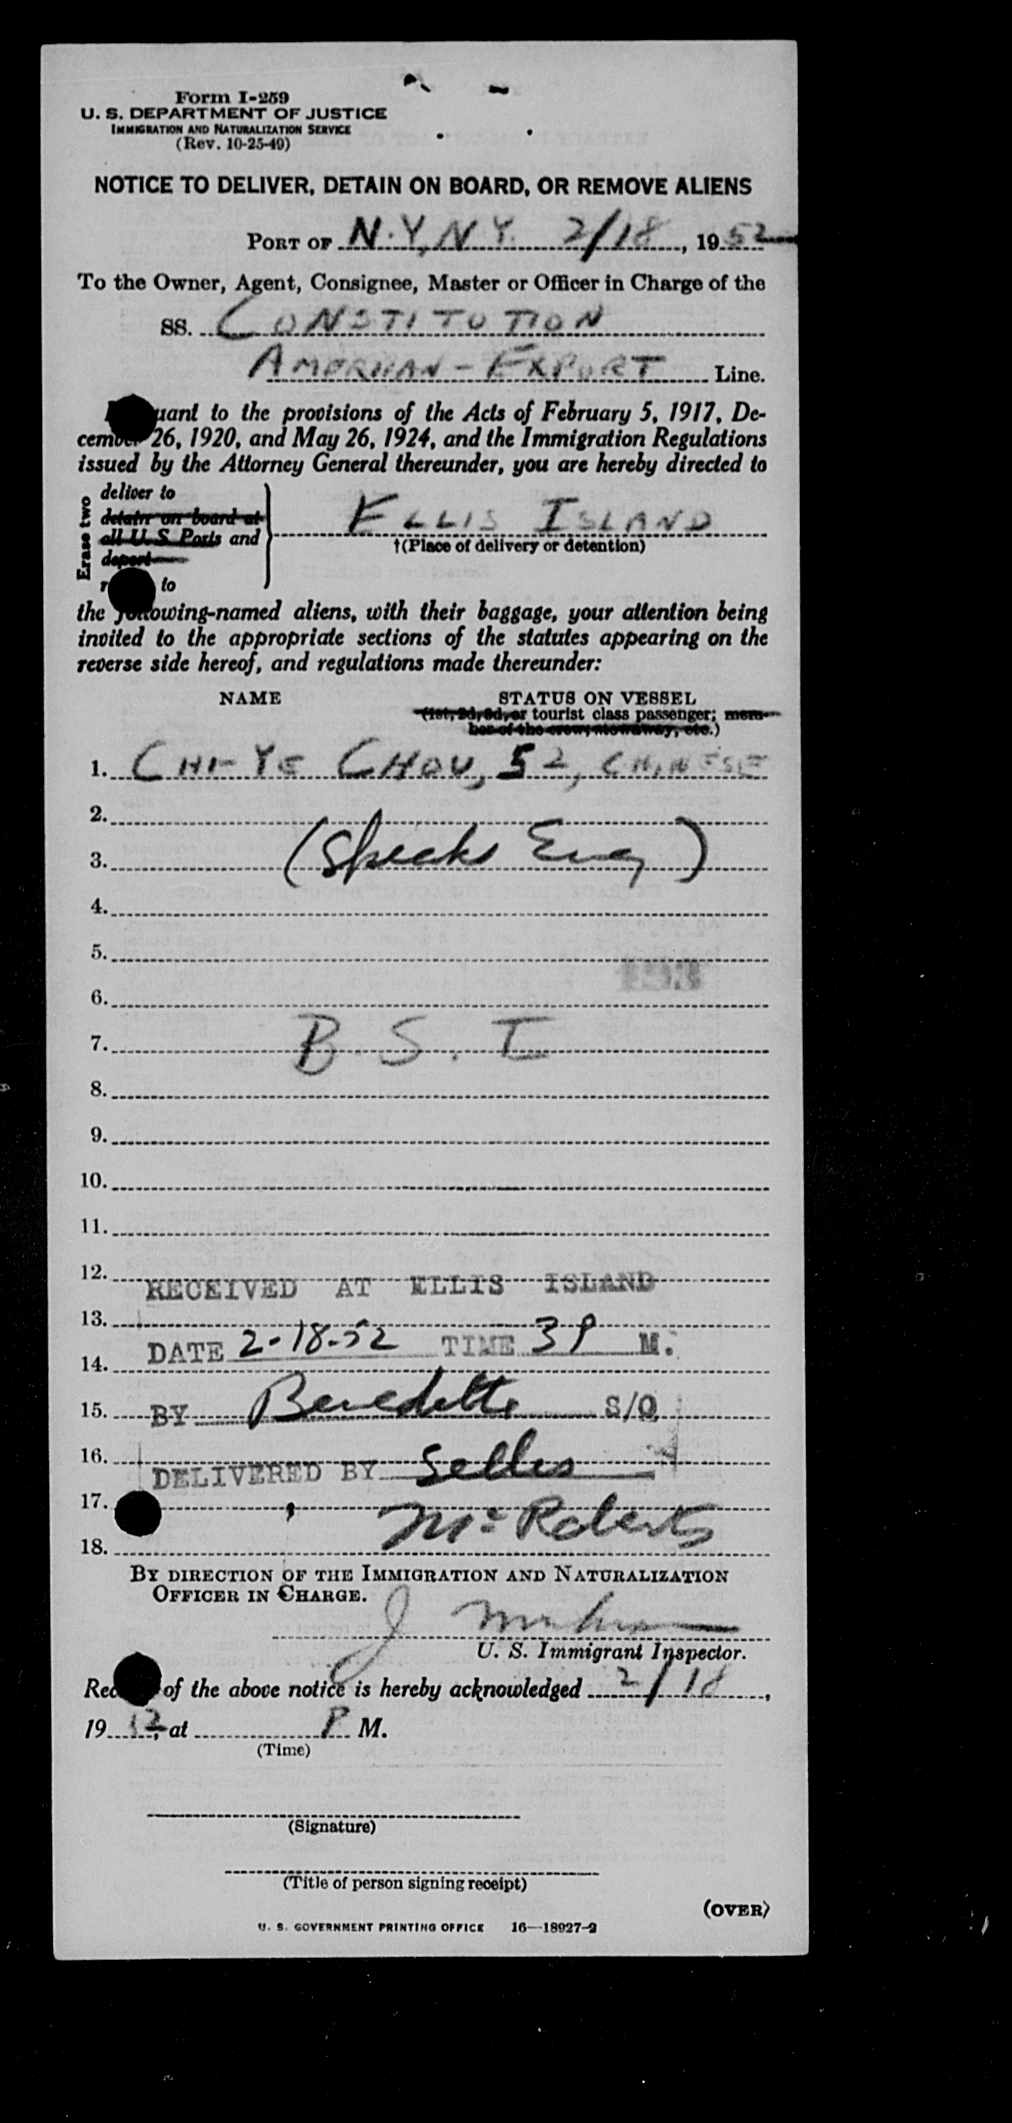 Form I-259
U. S. DEPARTMENT OF JUSTICE
IMMIGRATION AND NATURALIZATION SERVICE
(Rev. 10-25-49)
NOTICE TO DELIVER, DETAIN ON BOARD, OR REMOVE ALIENS
PORT OF N.Y, N.Y. 2/18, 1952
To the Owner, Agent, Consignee, Master or Officer in Charge of the
SS. CONSTITUTION
AMERICAN-EXPORT Line.
to the provisions of the Acts of February 5, 1917, De-
cember 26, 1920, and May 26, 1924, and the Immigration Regulations
issued by the Attorney General thereunder, you are hereby directed to
Erase two
deliver to
detain on board at
all U. S. Ports and
deport
to
ELLIS ISLAND
†(Place of delivery or detention)
the following-named aliens, with their baggage, your attention being
invited to the appropriate sections of the statutes appearing on the
reverse side hereof, and regulations made thereunder:
NAME STATUS ON VESSEL
(1st, 2d, 3d, or tourist class passenger; mem-
ber of the crew, stowaway, etc.)
1. CHI-YE CHOU, 52, CHINESE
2.
3. (Speaks Eng)
4.
5.
193
6.
7. B.S.I
8.
9.
10.
11.
12. RECEIVED AT ELLIS ISLAND
13.
DATE 2-18-52 TIME 3P M.
14.
15. BY Benedetto S/O
16.
DELIVERED BY Selles
17.
McRoberts
18.
BY DIRECTION OF THE IMMIGRATION AND NATURALIZATION
OFFICER IN CHARGE.
J
U. S. Immigrant Inspector.
of the above notice is hereby acknowledged 2/18,
1952, at P M.
(Time)
(Signature)
(Title of person signing receipt)
(OVER)
U. S. GOVERNMENT PRINTING OFFICE 16—18927-2